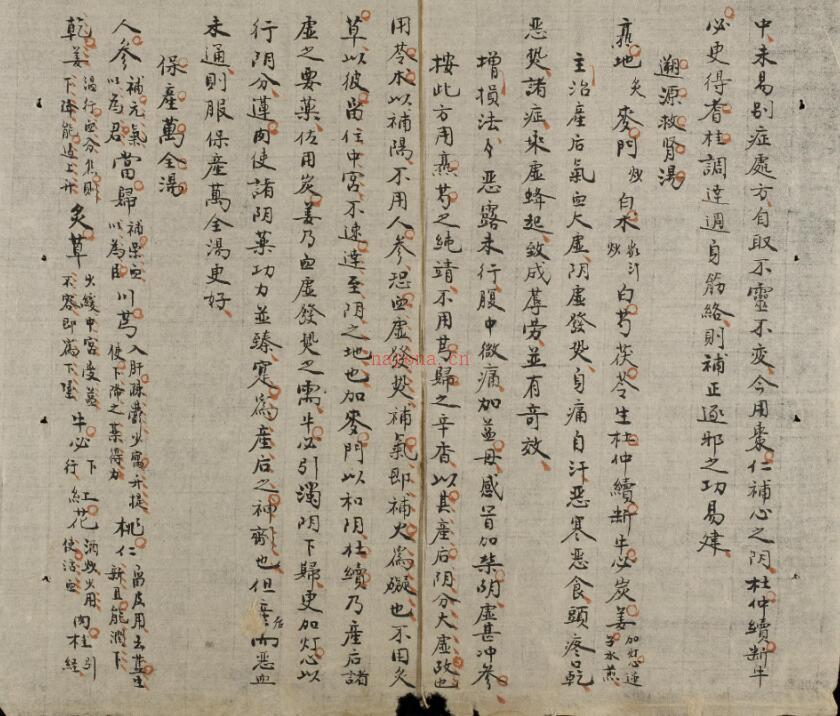 中、未易别症處方、自取不靈不变、今用棗仁補心之阴、杜仲續断牛
必更得耆桂調達週身筋絡則補正逐邪之功易建、
遡源救腎湯
熟地炙 麥門炒 白朮 炒 白芍 茯苓 生杜仲 續断 牛必 炭姜 加灯心
主治産后氣血大虚阴虚發热、自痛自汗、惡寒惡食、頭疼口乾
惡热、諸症乘虚蜂起、致成蓐劳、並有奇效、
增損法 惡露未行、腹中微痛、加益母、感冒加柴胡、虚甚冲参、
按此方用熟芍之純靖、不用芎歸之辛香、以其産后阴分大虚故也
用苓朮以補陽、不用人参、恐血虚發热、補氣即補火為礙也、不用炙
草、以彼畄住中宮、不速達至阴之地也、加麥門以和阴、杜續乃産后諸
虚之要薬、佐用炭姜乃血虚發热之需、牛必引濁阴下歸、更加灯心以
行阴分、蓮肉使諸阴薬功力並臻、寔為産后之神齊也、但産后而惡血
未通則服保産萬全湯更好、
保産萬全湯
人参 補元氣以為君 當歸 補 血以為臣 川芎 入肝 少需升提使下降之薬得力 桃仁 畄皮用去 能潤下
乾姜 温行血分 下降能 上升 炙草 火緩中宮 不容即 下 牛必 下行 紅花 酒炒少用使活血 肉桂 引経
hayona.cn